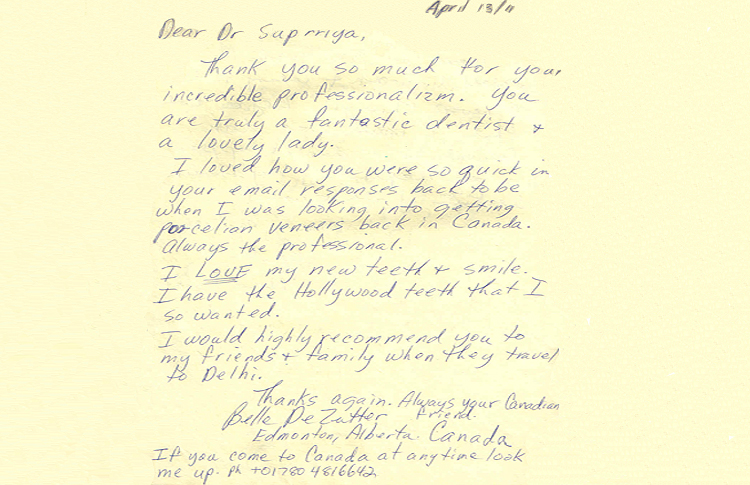 April 13/11
Dear Dr Suprriya,
Thank you so much for your
incredible professionalizm. You
are truly a fantastic dentist &
a lovely lady.
I loved how you were so quick in
your email responses back to be
when I was looking into getting
porcelian veneers back in Canada.
Always the professional.
I LOVE my new teeth & smile.
I have the Hollywood teeth that I
so wanted.
I would highly recommend you to
my friends & family when they travel
to Delhi.
Thanks again. Always your Canadian
friend.
Belle DeZutter
Edmonton, Alberta Canada
If you come to Canada at anytime look
me up. Ph +01780 4816642